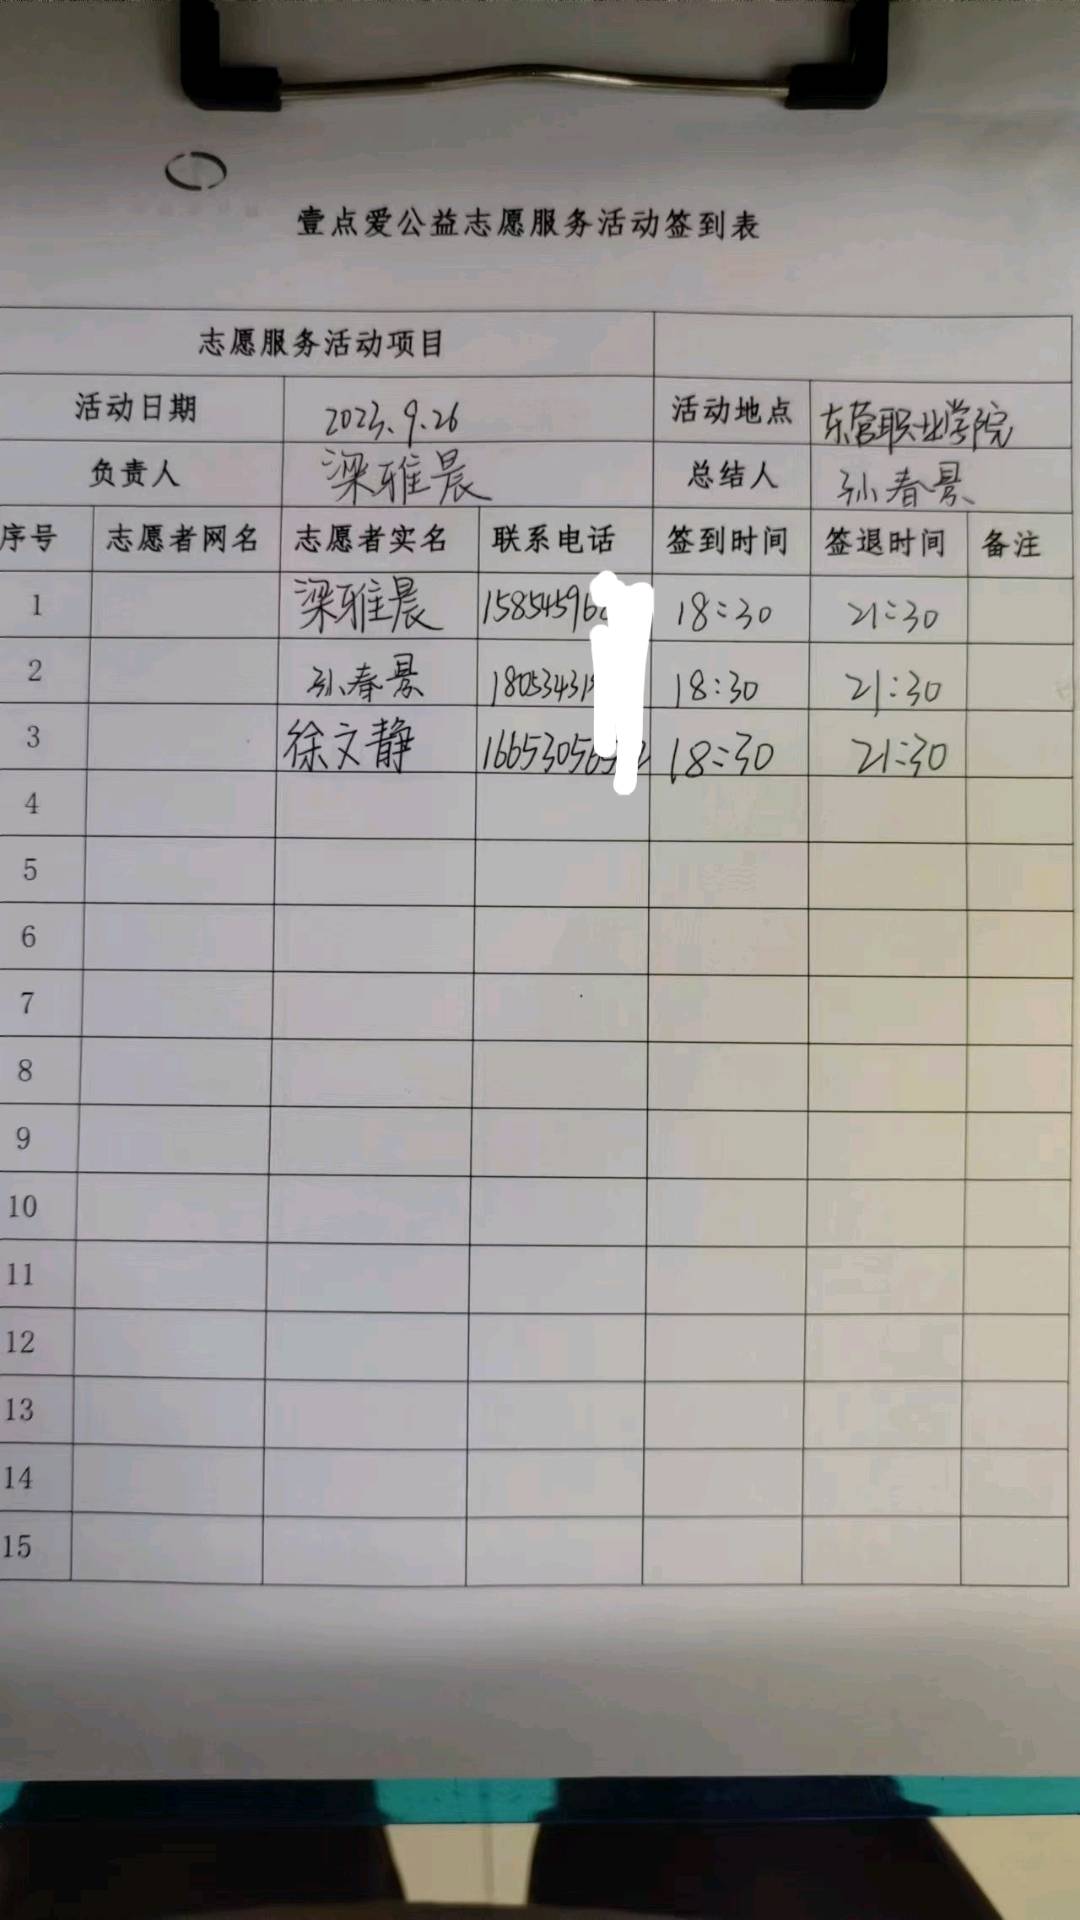 壹点爱公益志愿服务活动签到表
志愿服务活动项目
活动日期 2023.9.26 活动地点 东营职业学院
负责人 梁雅晨 总结人 孙春景
序号 志愿者网名 志愿者实名 联系电话 签到时间 签退时间 备注
1 梁雅晨 158545968 18:30 21:30
2 孙春景 18053431 18:30 21:30
3 徐文静 166530565 2 18:30 21:30
4
5
6
7
8
9
10
11
12
13
14
15